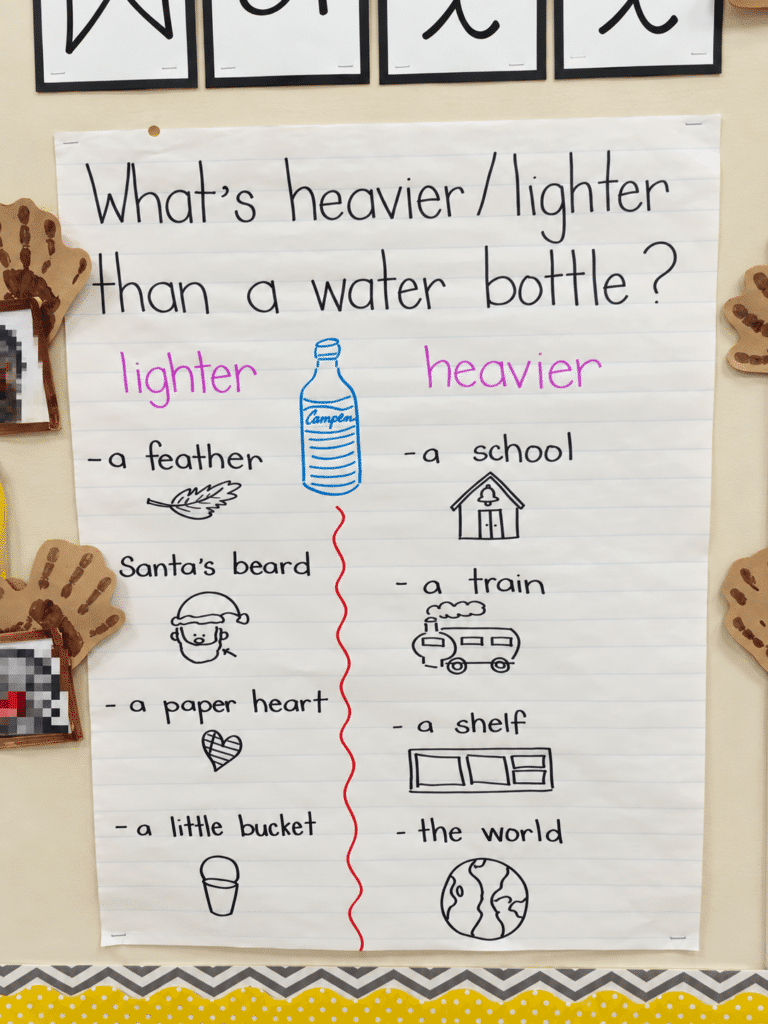 What's heavier/lighter
than a water bottle?
lighter
heavier
Campen
- a feather
Santa's beard
- a paper heart
- a little bucket
- a school
- a train
- a shelf
- the world